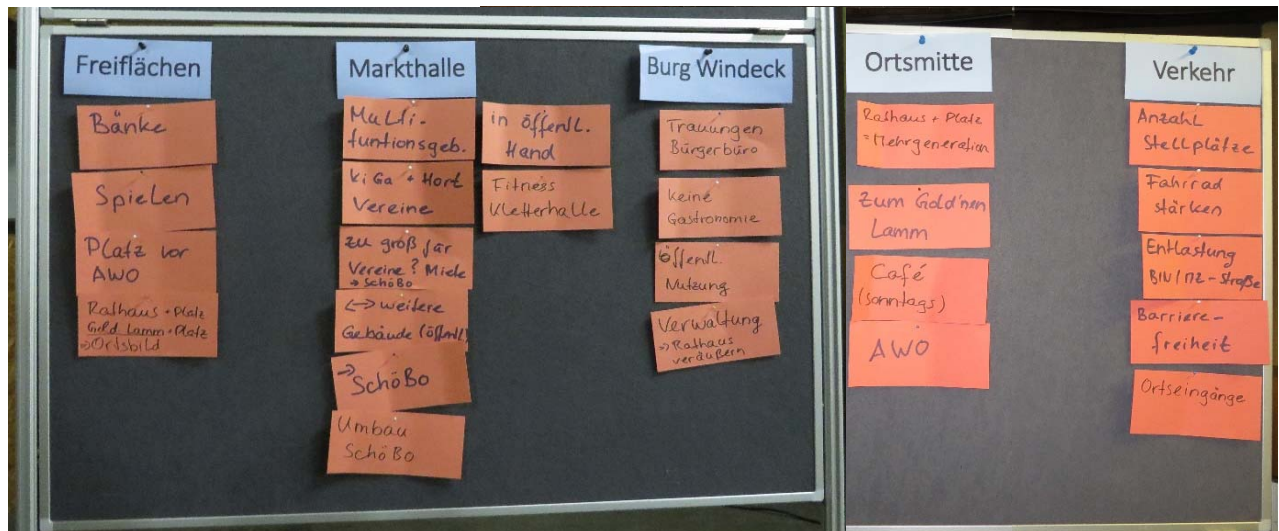 Freiflächen
Bänke
Spielen
Platz vor
AWO
Rathaus + Platz
Gold Lamm + Platz
⇒ Ortsbild
Markthalle
Multi-
funtionsgeb.
KiGa + Hort
Vereine
zu groß für
Vereine? Miete
→ SchöBo
↔ weitere
Gebäude (öffentl)
→
SchöBo
Umbau
SchöBo
in öffentl.
Hand
Fitness
Kletterhalle
Burg Windeck
Trauungen
Bürgerbüro
keine
Gastronomie
öffentl.
Nutzung
Verwaltung
⇒ Rathaus
veräußern
Ortsmitte
Rathaus + Platz
= Mehrgeneration
Zum Gold'nen
Lamm
Café
(sonntags)
AWO
Verkehr
Anzahl
Stellplätze
Fahrrad
stärken
Entlastung
BIN/MZ-Straße
Barriere-
freiheit
Ortseingänge